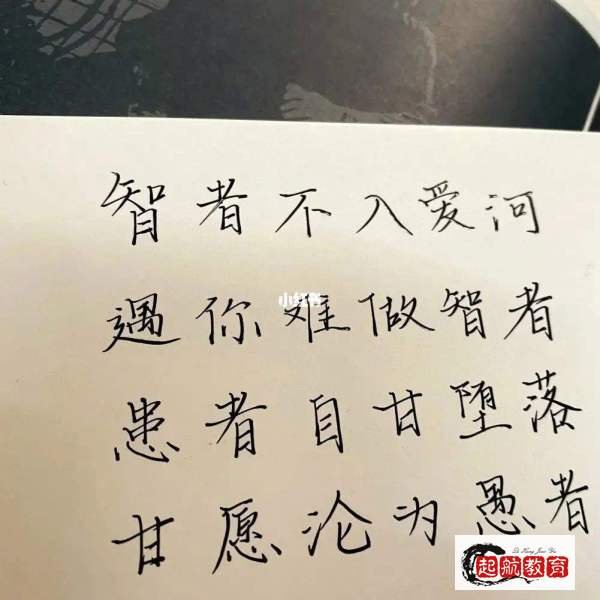 智者不入爱河
遇你难做智者
患者自甘堕落
甘愿沦为愚者
小红书
Qi Hang Jiao Yu
起航教育